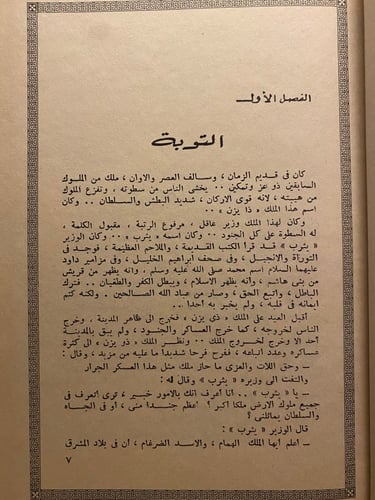 الفصل الأول
التوبة
كان فى قديم الزمان ، وسالف العصر والاوان ، ملك من الملوك
السابقين ذو عز وتمكين ٠٠ يخشى الناس من سطوته ، وتفزع الملوك
من هيبته ، لانه قوى الاركان ، شديد البطش والسلطان ٠٠ وكان
اسم هذا الملك « ذا يزن » ٠٠
وكان لهذا الملك وزير عاقل ، مرفوع الرتبة ، مقبول الكلمة ،
له السطوة على كل الجنود ٠٠ وكان اسمه « يثرب » ٠٠ وكان الوزير
« يثرب » قد قرأ الكتب القديمة ، والملاحم العظيمة ، فوجد فى
التوراة والانجيل ، وفى صحف ابراهيم الخليل ، وفى مزامير داود
عليهما السلام اسم محمد صلى الله عليه وسلم ، وانه يظهر من قريش
من بنى هاشم ، وانه يظهر الاسلام ، ويبطل الكفر والطغيان ٠٠ فترك
الباطل ، واتبع الحق ، وصار من عباد الله الصالحين ٠ ولكنه كتم
ايمانه فى قلبه ٠ ولم يخبر به احدا ٠٠
أقبل العيد على الملك ذى يزن ، فخرج الى ظاهر المدينة ، وخرج
الناس لخروجه ، كما خرج العساكر والجنود ، ولم يبق بالمدينة
أحد الا وخرج لخروج الملك ٠٠ ونظر الملك « ذى يزن » الى كثرة
عساكره وعدد اتباعه ، ففرح فرحا شديدا ما عليه من مزيد ، وقال :
ـ وحق اللات والعزى ما حاز ملك مثل هذا العسكر الجرار
والتفت الى وزيره « يثرب » وقال له :
ـ يا « يثرب » ٠٠ أنا أعرف انك بالامور خبير ، ترى أتعرف فى
جميع ملوك الارض ملكا أكبر ؟ أعظم جندا منى ، أو فى الجاه
والسلطان يماثلنى ؟
قال الوزير « يثرب » :
ـ اعلم أيها الملك الهمام ، والاسد الضرغام ، أن فى بلاد المشرق
٧